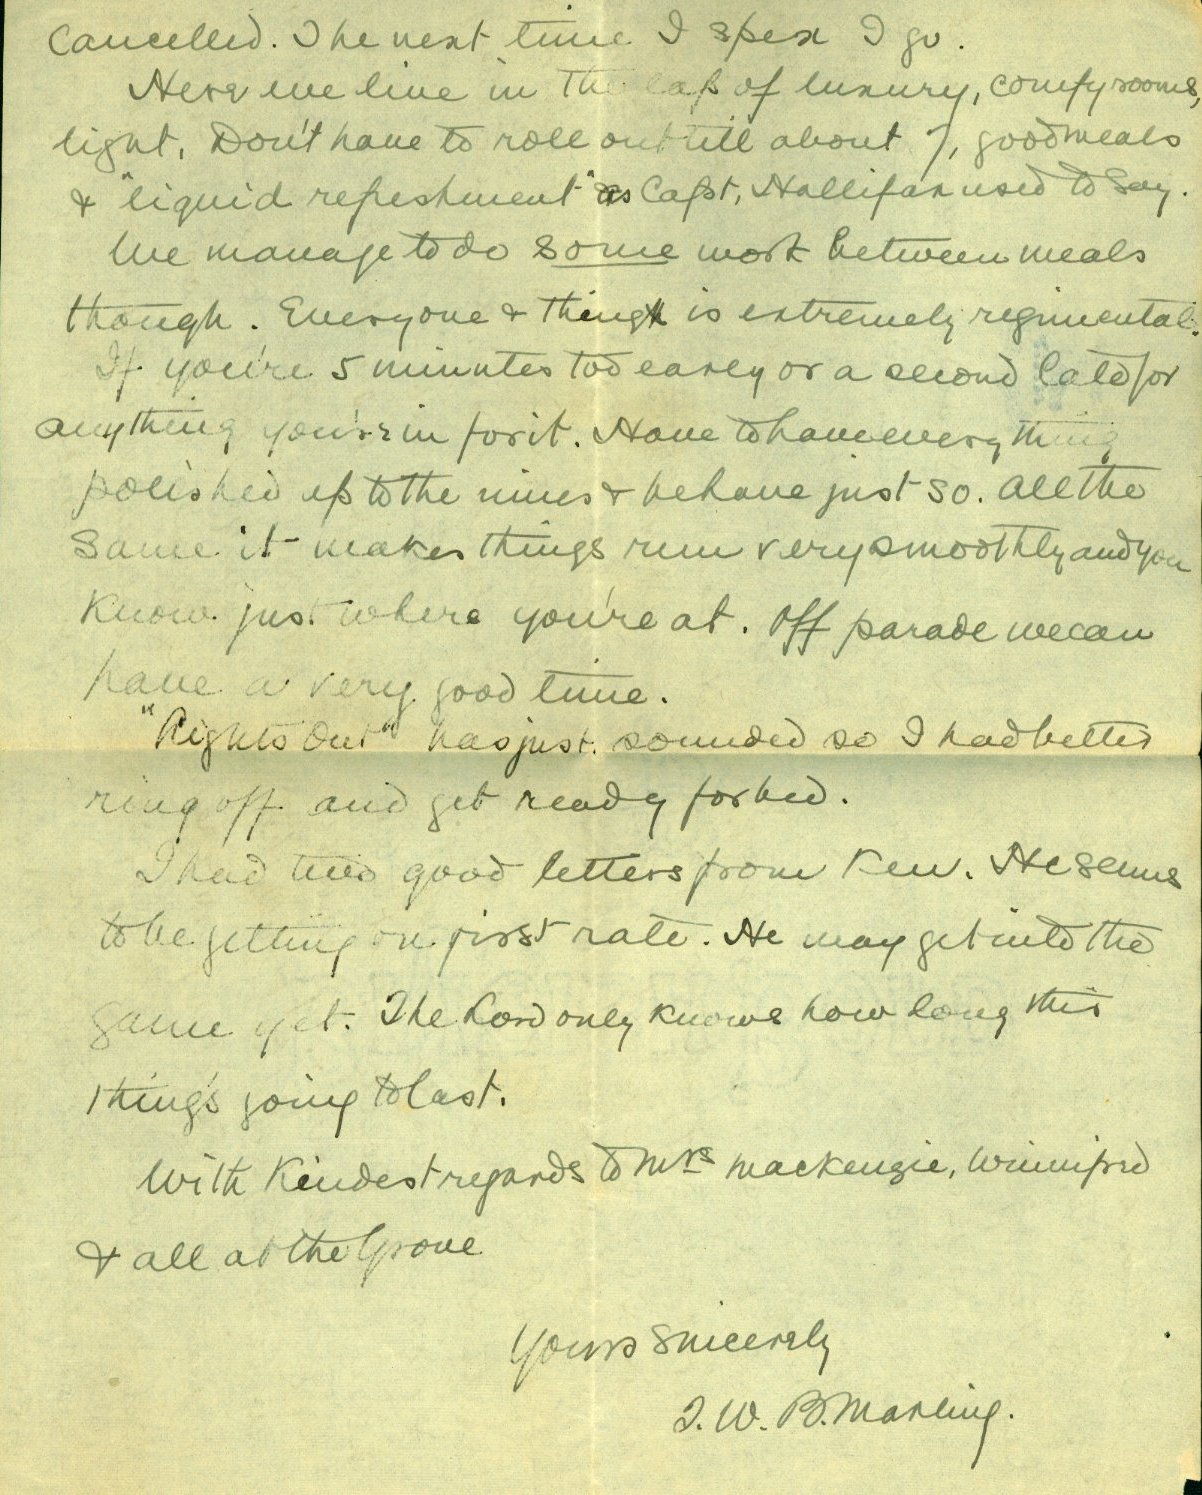 Cancelled. The next time I spex I go.
Here we live in the lap of luxury, comfy rooms,
light, Don't have to roll out till about 7, good meals
& "liquid refreshment" as Capt. Hallifax used to say.
We manage to do some work between meals
though. Everyone & thing is extremely regimental.
If you're 5 minutes too early or a second late for
anything you're in for it. Have to have everything
polished up to the nines & behave just so. All the
same it makes things run very smoothly and you
know just where you're at. Off parade we can
have a very good time.
"Lights Out" has just sounded so I had better
ring off and get ready for bed.
I had two good letters from Ken. He seems
to be getting on first rate. He may get into the
game yet. The Lord only knows how long this
thing's going to last.
With Kindest regards to Mrs Mackenzie, Winnifred
& all at the Grove
Yours sincerely
T. W. B. Marling.